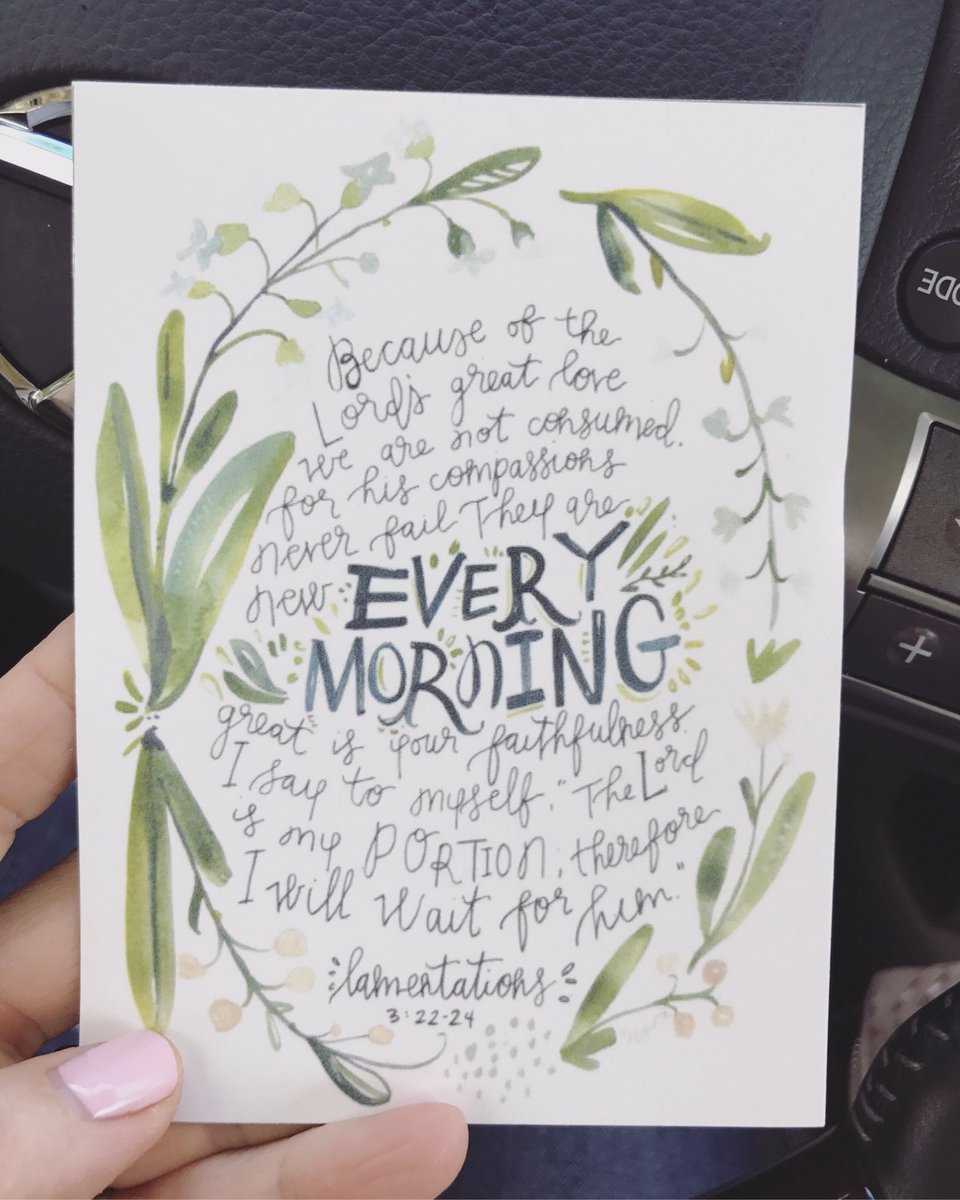 Because of the
Lord's great love
we are not consumed.
for his compassions
never fail They are
new EVERY
MORNING
great is your faithfulness.
I say to myself. "The Lord
is my PORTION, therefore
I will wait for him."
lamentations
3:22-24
+